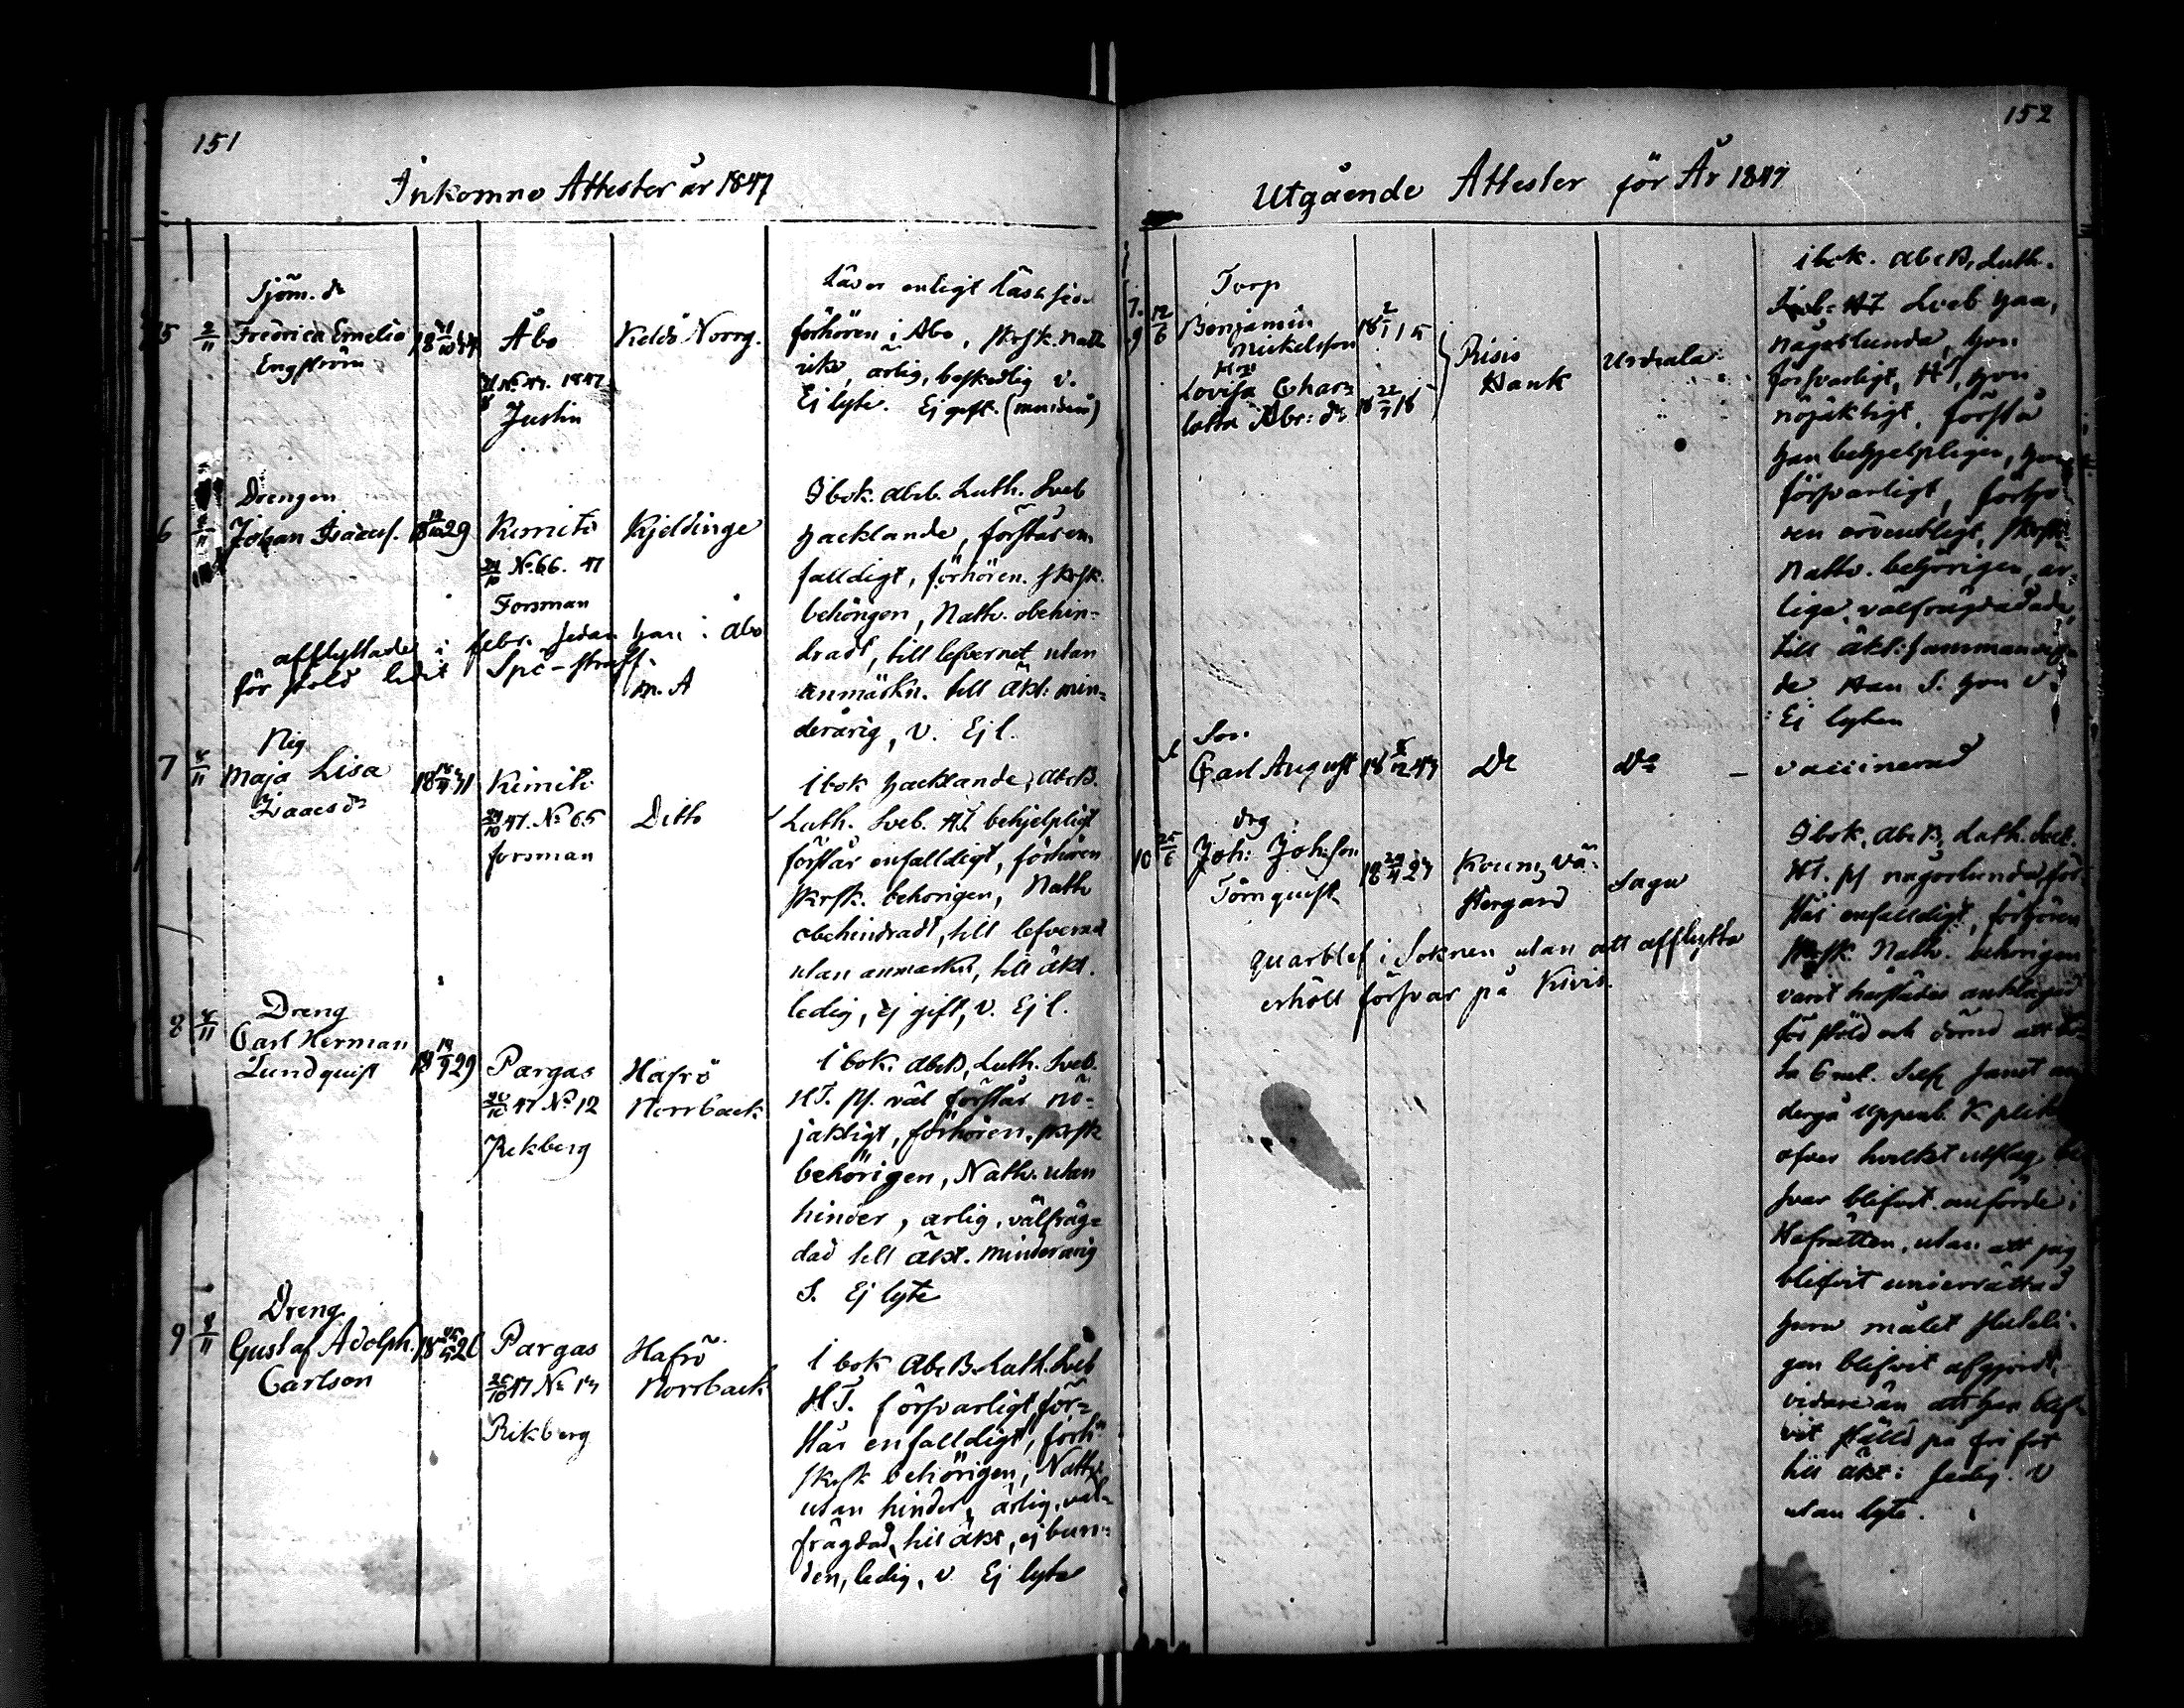 151
Inkomne Attester år 1847
Sjöm. dr
5 2/11 Fredrica Emelia
Engström
Åbo
No 47. 1847
Justin
Keldö Norrg.
Läser enligt
förhören i Åbo, skrsk. natt
ärlig, beskedlig v.
Ej lyte. Ej gift.
Drengen
6 Johan Isacss. 29
Kimito
No 66. 47
Forsman
Kjeldinge
I bok. abcb. Luth. Sveb
hacklande, förstår en
falldigt, förhören. skrsk.
behörigen, Nattv. obehin-
dradt, till lefvernet utan
anmärkn. till äkt: min-
derårig, v. Ej l.
afflyttade i febr. sedan han i Åbo
för stöld lidit Spö-straff.
m. A
Pig
7 Maja Lisa
Isaacs dr
Kimito
47. No 65
Forsman
Ditto
i bok hacklande, abcB.
Luth. Sveb. HT behjelpligt
förstår enfalldigt, förhören
skrsk. behörigen, Nattv
obehindradt, till lefvernet
utan anmärkn, till äkt.
ledig, ej gift, v. Ej l.
Dreng
8 Carl Herman
Lundquist 29
Pargas
47 No 12
Rekberg
Hafrö
Norrback
i bok. abcB, Luth. Sveb.
HT. ps. väl förstår nö-
jaktigt, förhören, skrsk
behörigen, Nattv. utan
hinder, ärlig, välfräg-
dad till äkt. minderårig
S. Ej lyte
Dreng
9 Gustaf Adolph
Carlson
Pargas
47 No 13
Rekberg
Hafrö
Norrback
i bok AbcB. Luth. Sveb
HT. försvarligt för-
står enfalldigt, förh
skrsk behörigen, Nattv
utan hinder, ärlig, väl-
frägdad, till äkt, ej bun-
den, ledig, v Ej lyte
152
Utgående Attester för År 1847
Torp
7. 12/6 Benjamin
9 Mickelsson
Hu
Lovisa Char-
lotta Abr: dr
Risis
Hank
Urdiala
i bok. abcB, Luth.
Sveb han,
någorlunda, hon
försvarligt, HT, hon
nöjaktigt, förstå
han behjelpligen, hon
försvarligt, förhö-
ren ordentligt, skrsk.
Nattv. behörigen, är-
liga, välfrägdade,
till äkt: sammanvig-
de Han S. hon v.
Ej lyten
Son
Carl August 47
Do
Do
vaccinerad
drg
10 25/6 Joh: Johsson
Törnquist
Sagu
I bok, AbcB, Luth. Sveb.
HT. ps någorlunda för
står enfalldigt, förhören
skrsk. Nattv. behörigen
varit härstädes anklagad
för stöld och dömd att bö-
ta 6 rub. Silf samt un
dergå uppenb. K plikt
öfver hvilket utslag be
svär blifvit anförde i
Hofrätten, utan att jag
blifvit underrättad
huru målet slutli-
gen blifvit afgjordt,
vidare än att han blif-
vit ställd på fri fot
till äkt: ledig. v
utan lyte.
quarblef i Soknen utan att afflytta
erhöll försvar på Kivis.